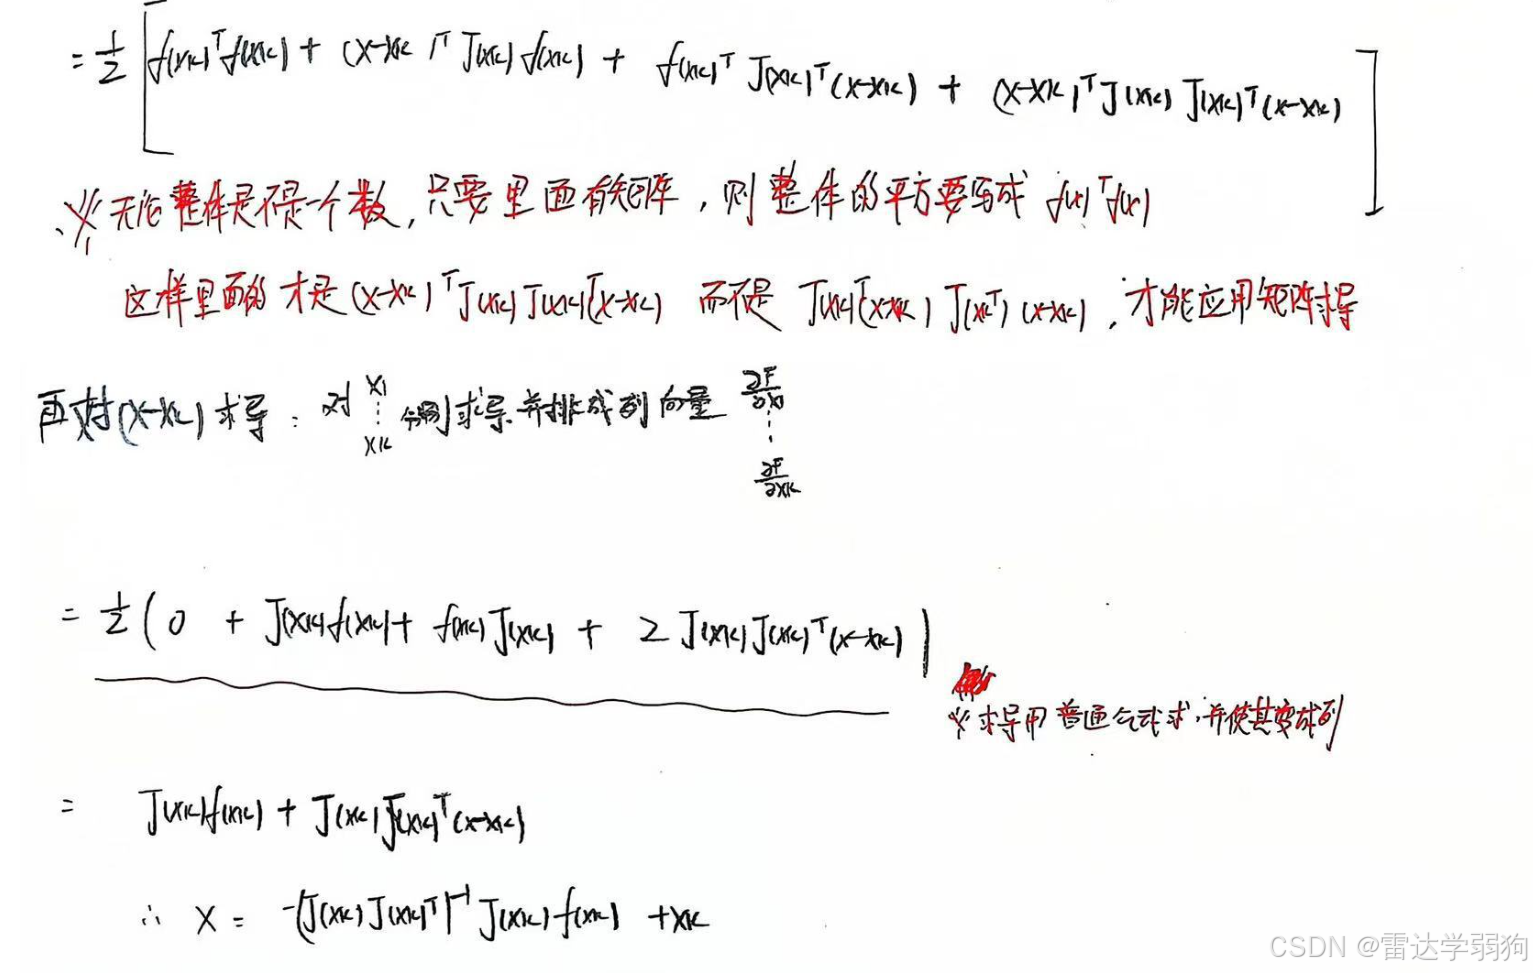 = 1/2 [ f(xk)ᵀf(xk) + (x-xk)ᵀJ(xk)f(xk) + f(xk)ᵀJ(xk)ᵀ(x-xk) + (x-xk)ᵀJ(xk)J(xk)ᵀ(x-xk) ]
※ 无论整体是不是一个数,只要里面有矩阵,则整体的平方要写成 f(x)ᵀf(x)
这样里面的才是(x-xk)ᵀJ(xk)J(xk)ᵀ(x-xk) 而不是 J(xk)ᵀ(x-xk)J(xkᵀ)(x-xk),才能应用矩阵求导
再对(x-xk)求导: 对 x1 ⋮ xk 分别求导,并排成列向量 ∂F/∂x1 ⋮ ∂F/∂xk
= 1/2 ( 0 + J(xk)f(xk) + f(xk)J(xk) + 2J(xk)J(xk)ᵀ(x-xk) )
※ 求导用普通公式求,并使其变成列
= J(xk)f(xk) + J(xk)J(xk)ᵀ(x-xk)
∴ x = -(J(xk)J(xk)ᵀ)⁻¹J(xk)f(xk) + xk
CSDN @雷达学弱狗